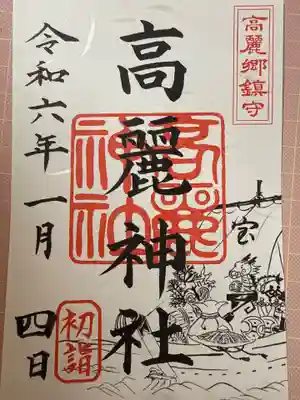 高麗郷鎮守
高麗神社
高麗
神社
令和六年一月
四日
初詣
宝